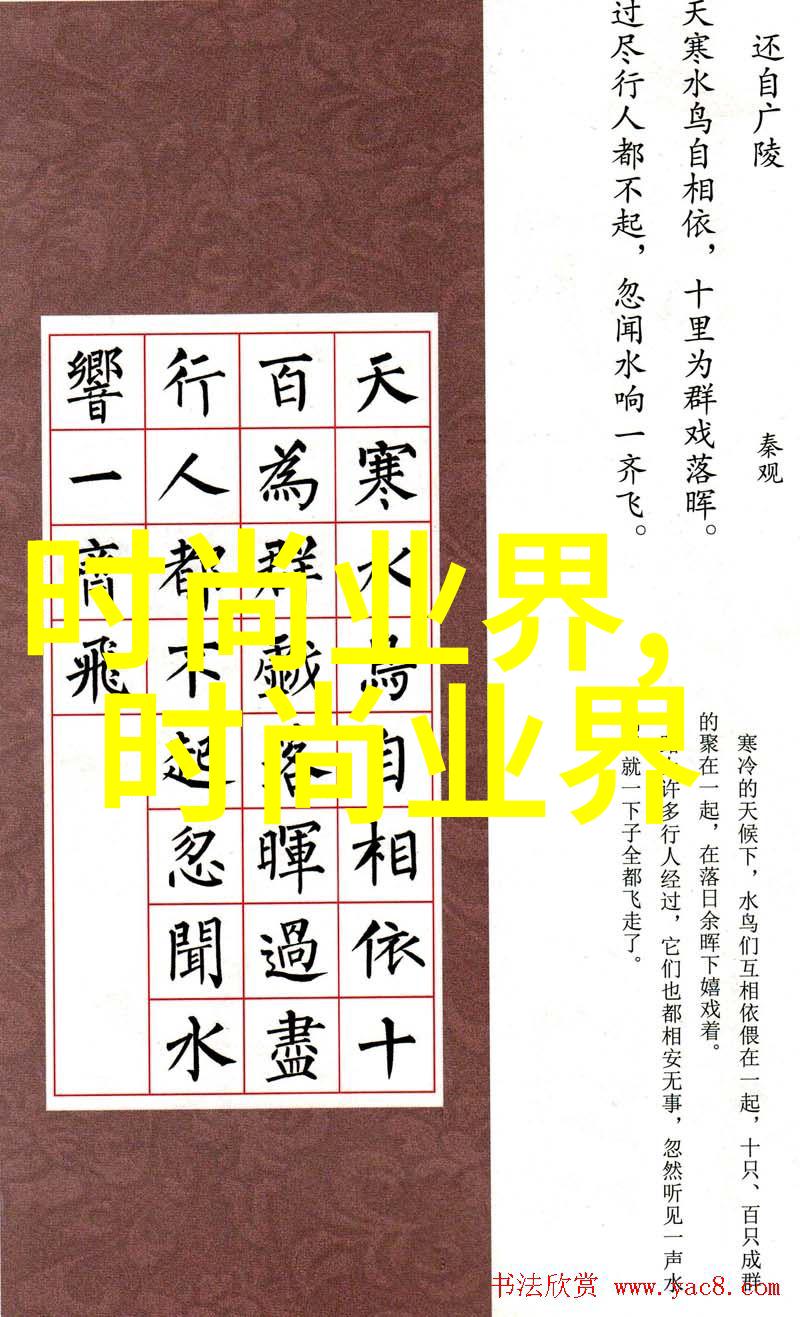 还自广陵
秦观
天寒水鸟自相依，十里为群戏落晖。
过尽行人都不起，忽闻水响一齐飞。
天寒水鳥自相依十
百為群戲落暉過盡
行人都不起忽聞水
響一齊飛
时尚业界，
时尚业界
寒冷的天候下，水鸟们互相依偎在一起，十只、百只成群
的聚在一起，在落日余晖下嬉戏着。
许多行人经过，它们也都相安无事，忽然听见一声水
就一下子全都飞走了。
书法欣赏 www.yac8.com